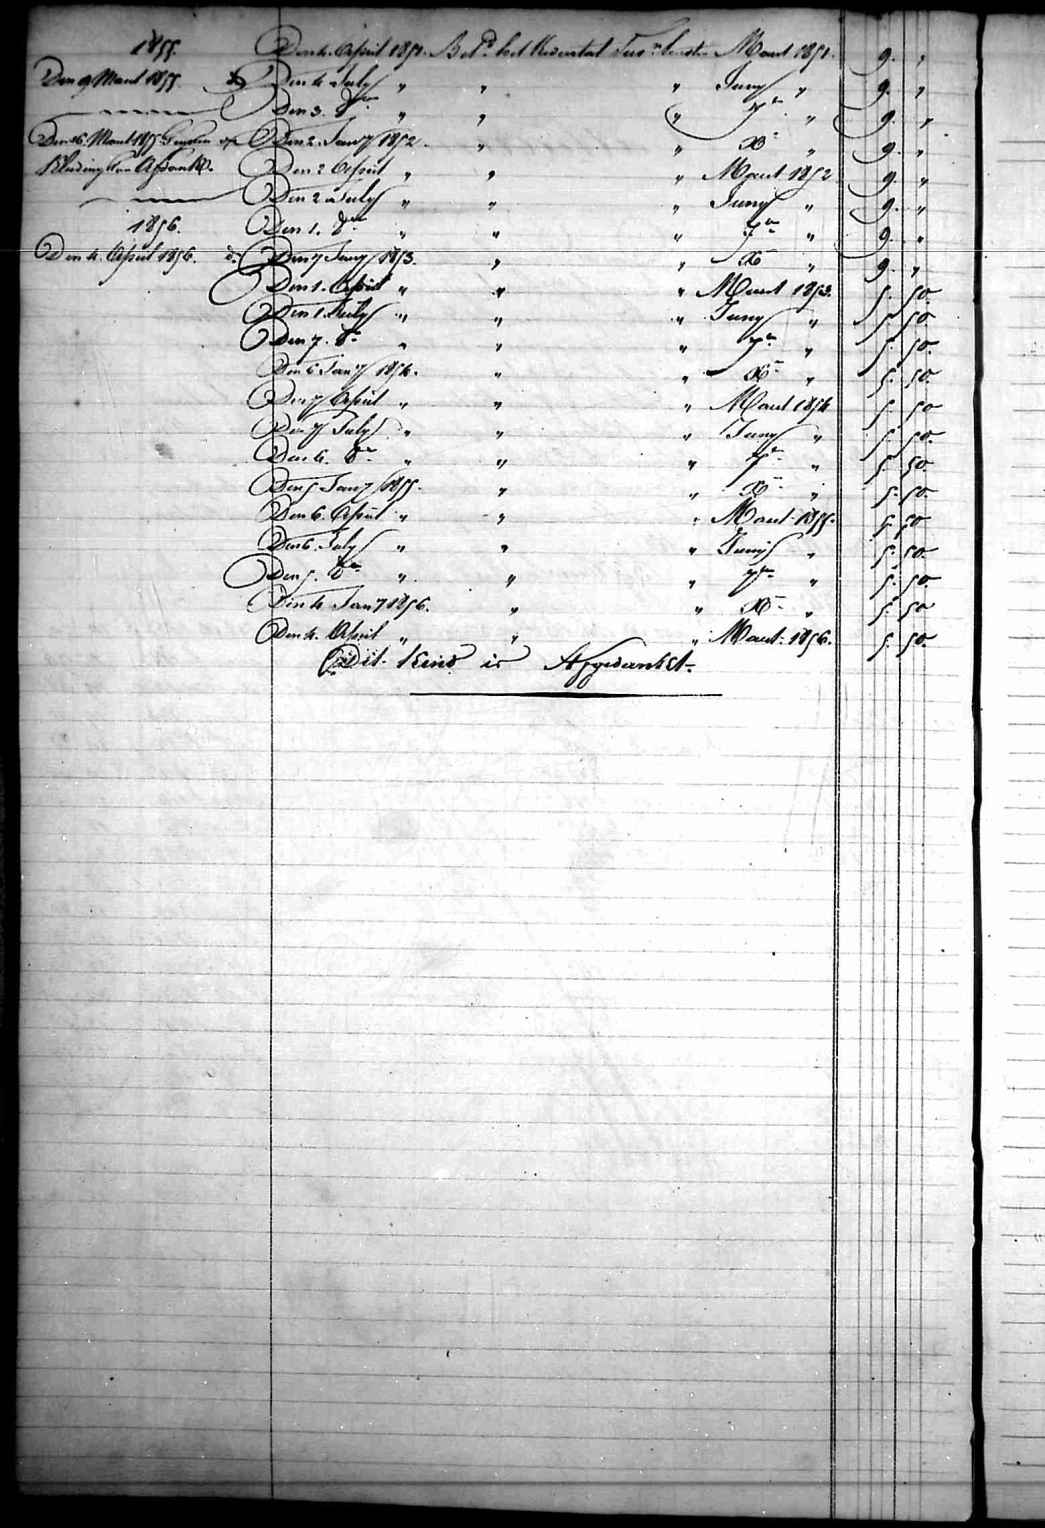 1855.
Den 9 Maart 1855.
Den 16. Maart 1855
Kleeding van
1856.
Den 4. April 1856. d.
Den 4. April 1851. Bet.d het Kwartaal Maart 1851. 9. "
Den 4 July " " " Juny " 9. "
Den 3. 8.r " " " 7.r " 9. "
Den 2. Jany 1852. " " X.r " 9. "
Den 2 April " " " Maart 1852 9. "
Den 2 July " " " Juny " 9. "
Den 1. 8.r " " " 7.r " 9. "
Den 7 Jany 1853. " " X.r " 9. "
Den 1. April " " " Maart 1853. 5. 50.
Den 1 July " " " Juny " 5. 50.
Den 7. 8.r " " " 7.r " 5. 50.
Den 6 Jany 1854. " " X.r " 5. 50.
Den 7 April " " " Maart 1854 5. 50
Den 7 July " " " Juny " 5. 50.
Den 6. 8.r " " " 7.r " 5. 50.
Den 5 Jany 1855. " " X.r " 5. 50.
Den 6. April " " " Maart 1855. 5. 50
Den 6. July " " " Juny " 5. 50.
Den 5. 8.r " " " 7.r " 5. 50.
Den 4 Jany 1856. " " X.r " 5. 50
Den 4. April " " " Maart 1856. 5. 50.
Dit Kind is Afgedankt.